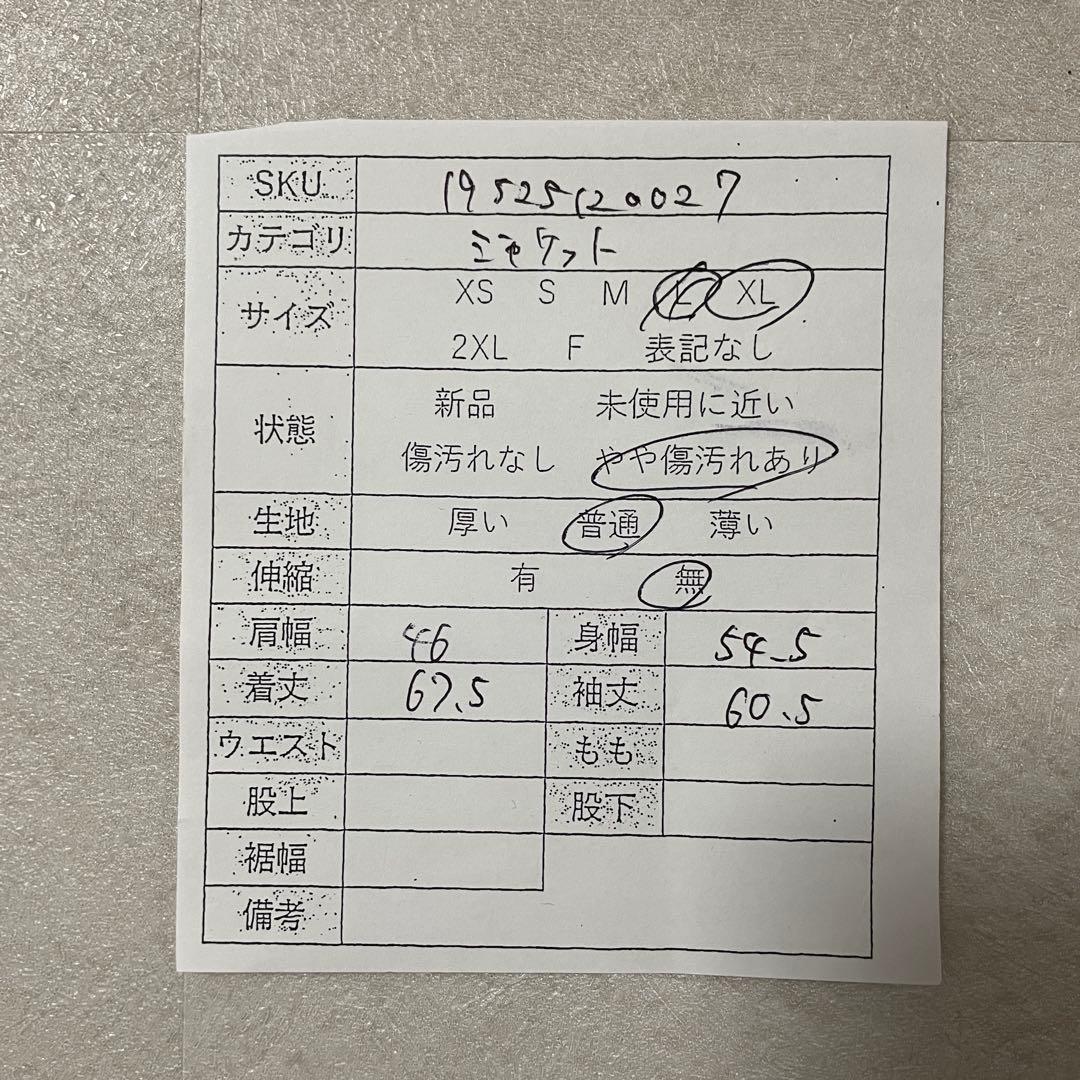 SKU 19525120027
カテゴリ ジャケット
サイズ XS S M L XL
2XL F 表記なし
状態 新品 未使用に近い
傷汚れなし やや傷汚れあり
生地 厚い 普通 薄い
伸縮 有 無
肩幅 46 身幅 54.5
着丈 67.5 袖丈 60.5
ウエスト もも
股上 股下
裾幅
備考